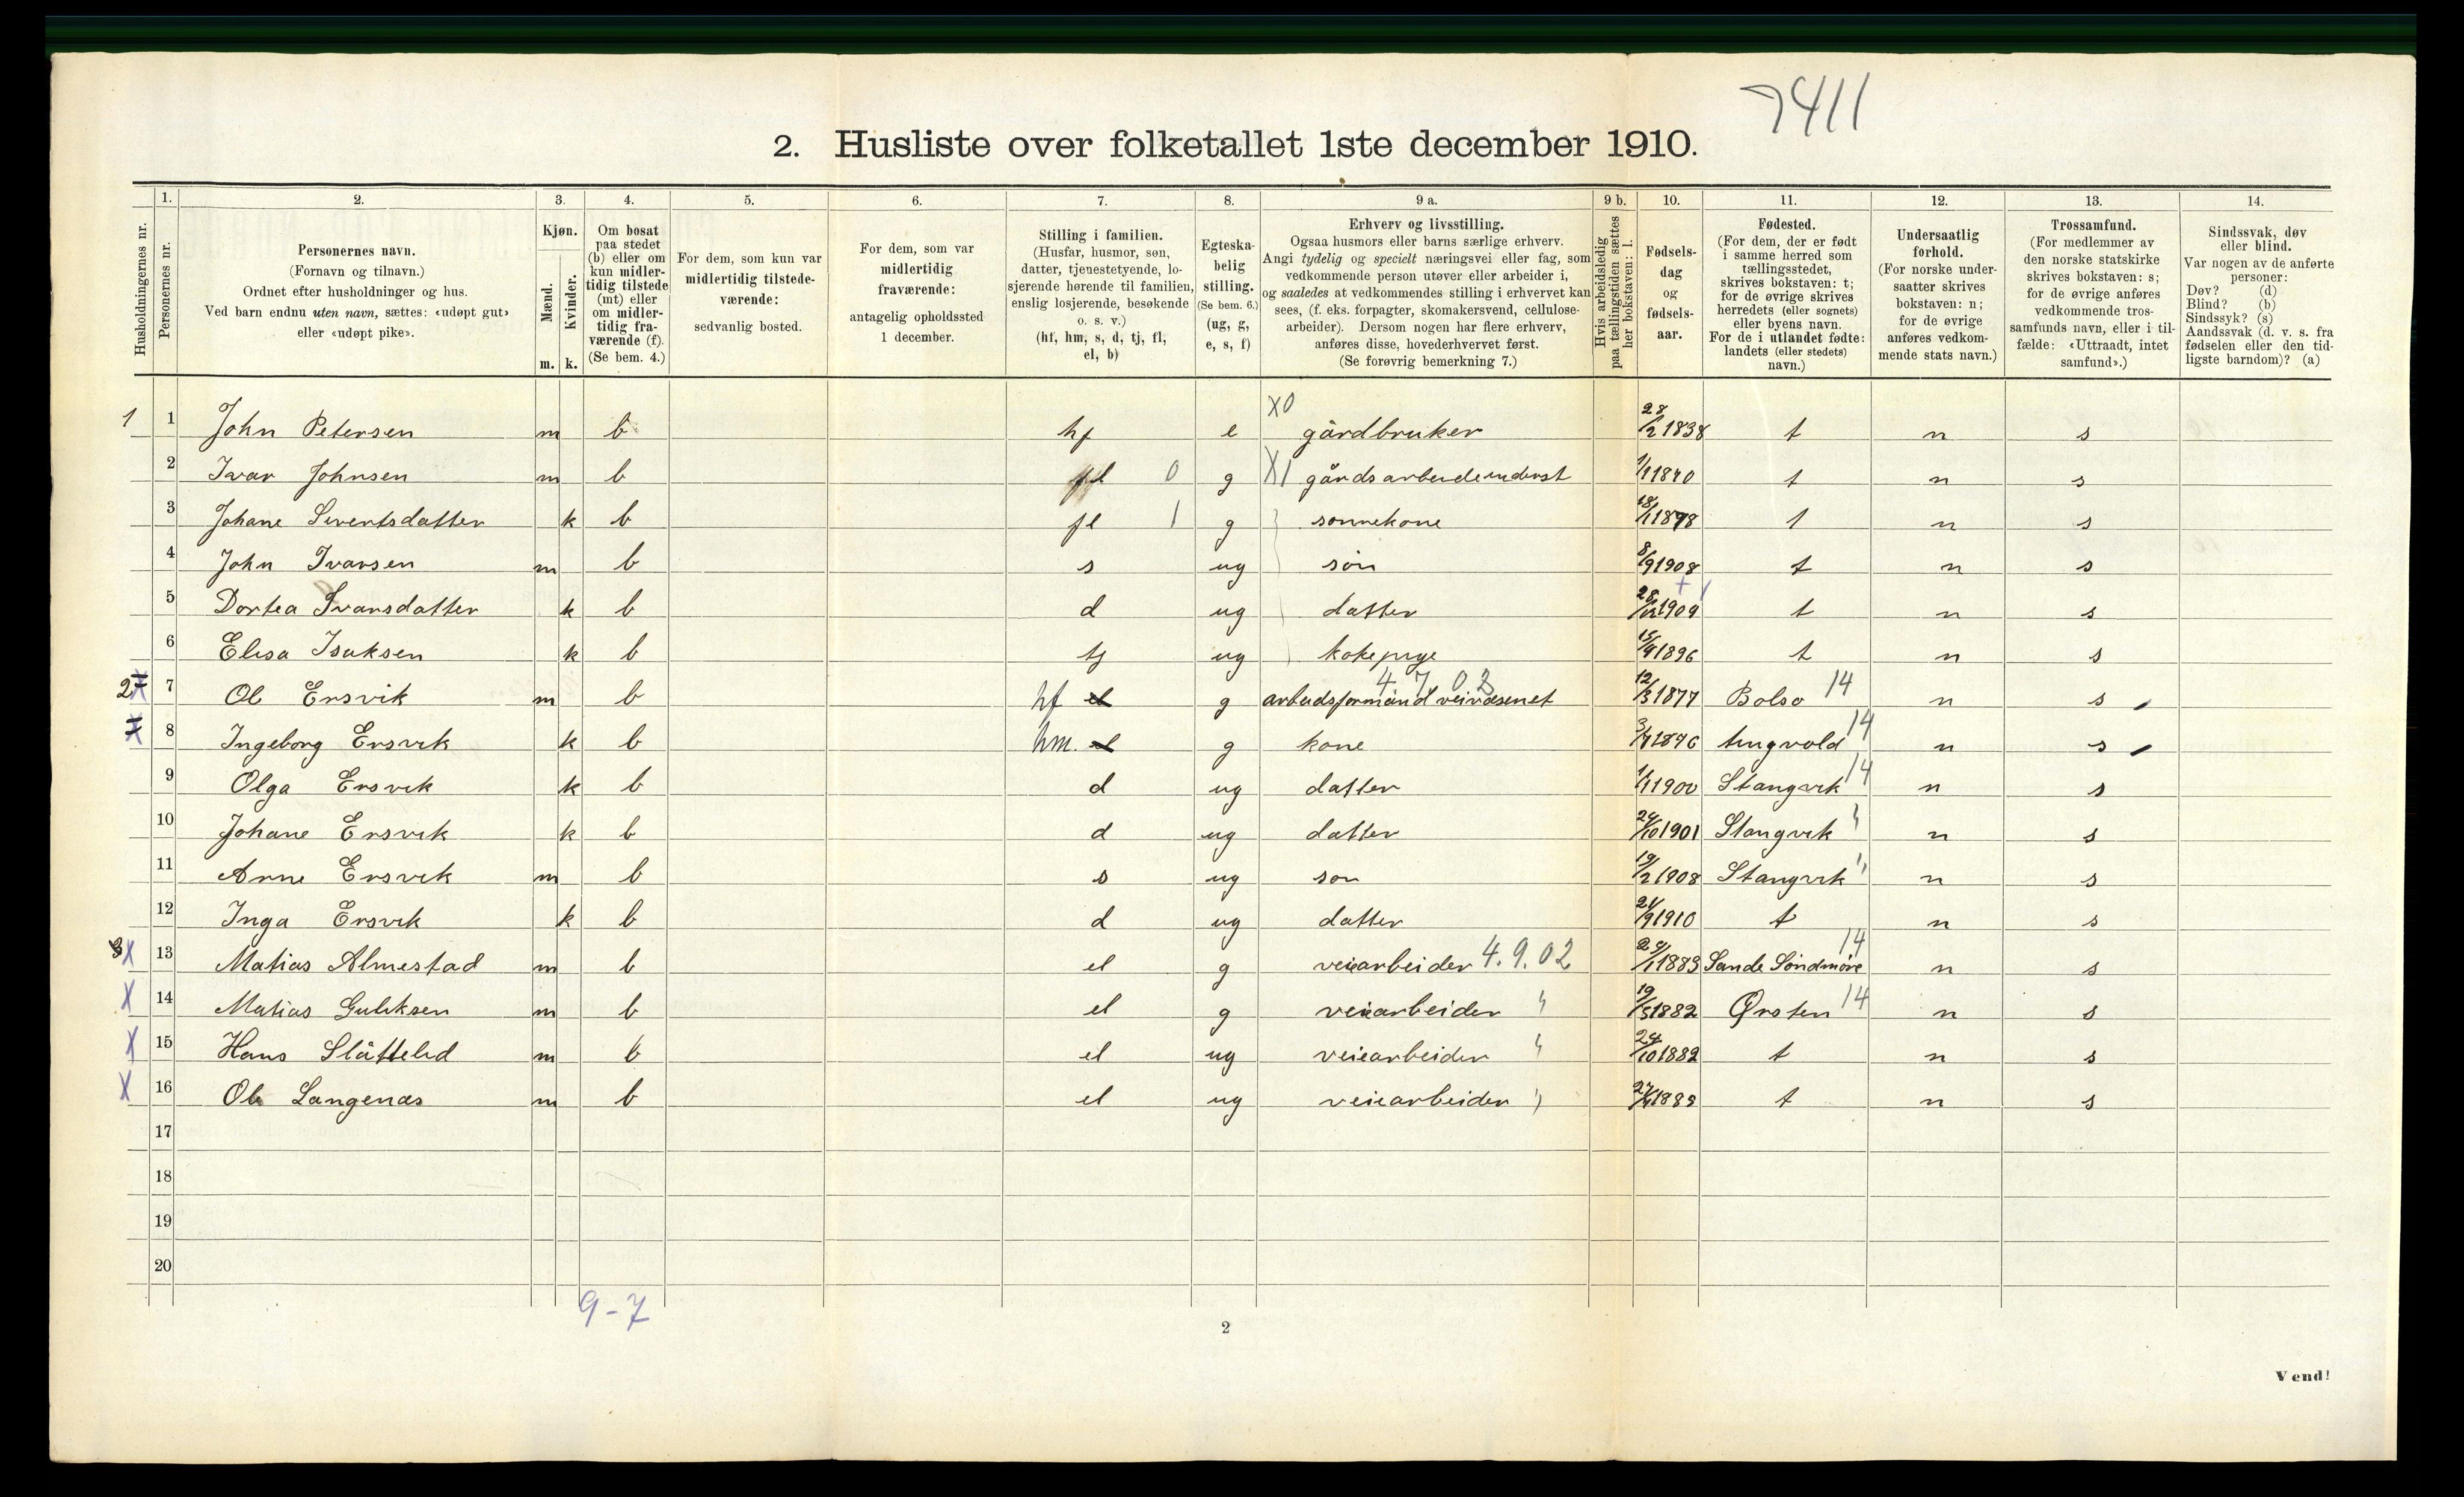 7411
2. Husliste over folketallet 1ste december 1910.
Husholdningernes nr.
1. Personernes nr.
2. Personernes navn.
(Fornavn og tilnavn.)
Ordnet efter husholdninger og hus.
Ved barn endnu uten navn, sættes: «udøpt gut»
eller «udøpt pike».
3. Kjøn.
Mænd. m.
Kvinder. k.
4. Om bosat
paa stedet
(b) eller om
kun midler-
tidig tilstede
(mt) eller
om midler-
tidig fra-
værende (f).
(Se bem. 4.)
5. For dem, som kun var
midlertidig tilstede-
værende:
sedvanlig bosted.
6. For dem, som var
midlertidig
fraværende:
antagelig opholdssted
1 december.
7. Stilling i familien.
(Husfar, husmor, søn,
datter, tjenestetyende, lo-
sjerende hørende til familien,
enslig losjerende, besøkende
o. s. v.)
(hf, hm, s, d, tj, fl,
el, b)
8. Egteska-
belig
stilling.
(Se bem. 6.)
(ug, g,
e, s, f)
9 a. Erhverv og livsstilling.
Ogsaa husmors eller barns særlige erhverv.
Angi tydelig og specielt næringsvei eller fag, som
vedkommende person utøver eller arbeider i,
og saaledes at vedkommendes stilling i erhvervet kan
sees, (f. eks. forpagter, skomakersvend, cellulose-
arbeider). Dersom nogen har flere erhverv,
anføres disse, hovederhvervet først.
(Se forøvrig bemerkning 7.)
9 b. Hvis arbeidsledig
paa tællingstiden sættes
her bokstaven: l.
10. Fødsels-
dag
og
fødsels-
aar.
11. Fødested.
(For dem, der er født
i samme herred som
tællingsstedet,
skrives bokstaven: t;
for de øvrige skrives
herredets (eller sognets)
eller byens navn.
For de i utlandet fødte:
landets (eller stedets)
navn.)
12. Undersaatlig
forhold.
(For norske under-
saatter skrives
bokstaven: n;
for de øvrige
anføres vedkom-
mende stats navn.)
13. Trossamfund.
(For medlemmer av
den norske statskirke
skrives bokstaven: s;
for de øvrige anføres
vedkommende tros-
samfunds navn, eller i til-
fælde: «Uttraadt, intet
samfund».)
14. Sindssvak, døv
eller blind.
Var nogen av de anførte
personer:
Døv? (d)
Blind? (b)
Sindssyk? (s)
Aandssvak (d. v. s. fra
fødselen eller den tid-
ligste barndom)? (a)
1 1 John Petersen m b hf e X0 gårdbruker 28/2 1838 t n s
2 Ivar Johnsen m b fl 0 g X1 1/1 1870 t n s
3 Johane Sivertsdatter k b fl 1 g sønnekone 18/1 1878 t n s
4 John Ivarsen m b s ug søn 8/9 1908 t n s
5 Dortea Ivarsdatter k b d ug datter 28/12 1909 t n s
6 Elisa Isaksen k b tj ug kokepige 15/4 1896 t n s
2 X 7 Ole Ersvik m b hf el g arbeidsformand veivæsenet 4 7 02 12/3 1877 Bolsø 14 n s
X 8 Ingeborg Ersvik k b hm. el g kone 3/7 1876 14 n s
9 Olga Ersvik k b d ug datter 1/1 1900 Stangvik 14 n s
10 Johane Ersvik k b d ug datter 24/10 1901 Stangvik n s
11 Arne Ersvik m b s ug søn 19/2 1908 Stangvik n s
12 Inga Ersvik k b d ug datter 21/9 1910 t n s
3 X 13 Matias Almestad m b el g veiarbeider 4.9.02 1883 Sande Søndmøre 14 n s
X 14 Matias Guliksen m b el g veiarbeider 19/5 1882 Ørsten 14 n s
X 15 Hans Slåttelid m b el ug veiearbeider 24/10 1882 t n s
X 16 Ole Langenæs m b el ug veiearbeider t n s
17
18
19
20
9-7
2
Vend!